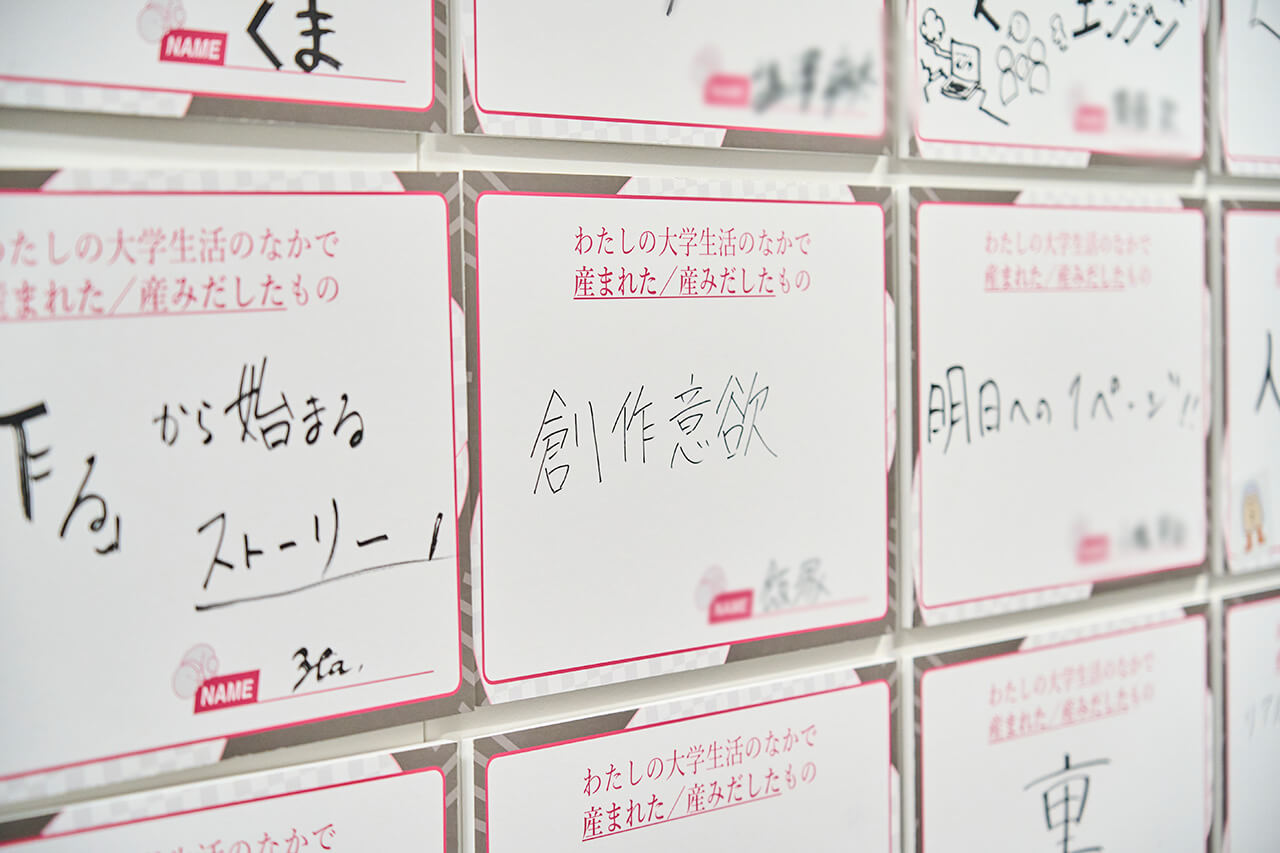 NAME
くま
NAME
エンジン
わたしの大学生活のなかで
産まれた／産みだしたもの
作る」から始まる
ストーリー!
NAME
わたしの大学生活のなかで
産まれた／産みだしたもの
創作意欲
NAME
わたしの大学生活のなかで
産まれた／産みだしたもの
明日への1ページ!!
わたしの大学生活のなかで
産まれた／産みだしたもの
わたしの大学生活のなかで
産まれた／産みだしたもの